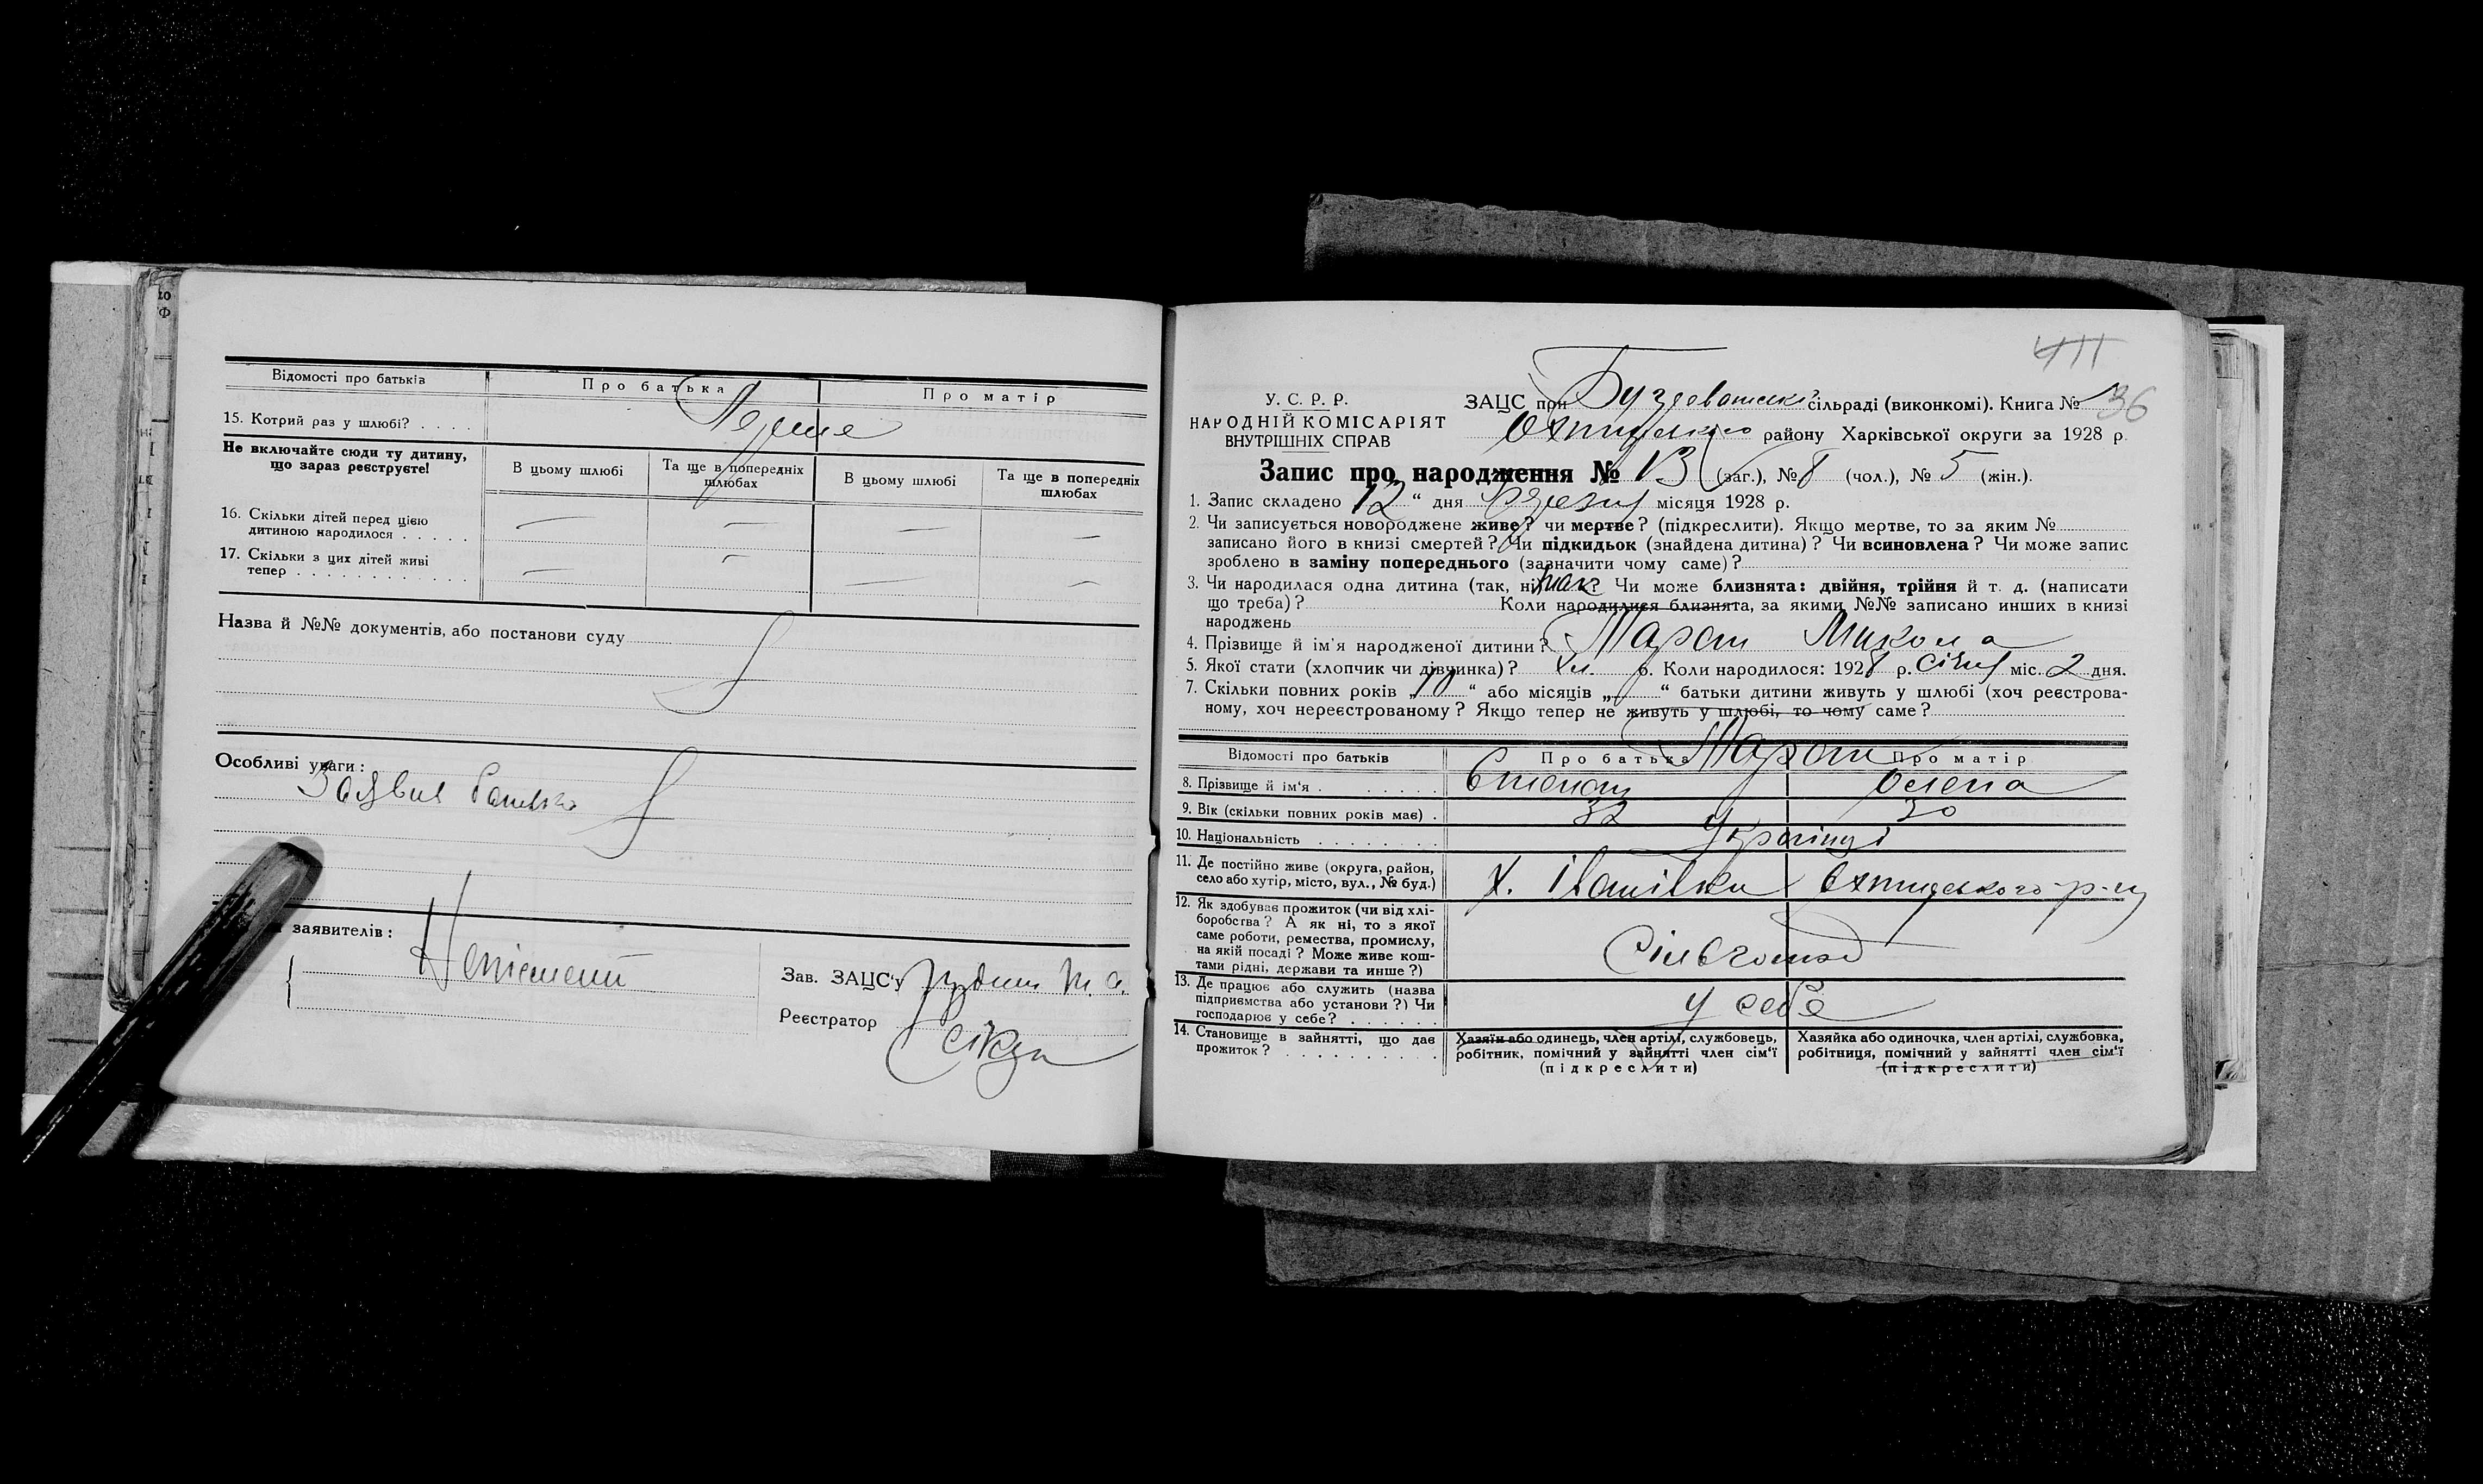 Відомості про батьків
Про батька
Про матір
15. Котрий раз у шлюбі? . . . .
Перше
Не включайте сюди ту дитину,
що зараз реєструєте!
В цьому шлюбі
Та ще в попередніх
шлюбах
В цьому шлюбі
Та ще в попередніх
шлюбах
16. Скільки дітей перед цією
дитиною народилося . . . . .
— — — —
17. Скільки з цих дітей живі
тепер . . . . . . . . . . . .
— — — —
Назва й №№ документів, або постанови суду
Особливі уваги:
Заявив батько
заявителів:
Неписьмений
Зав. ЗАЦС'у
Реєстратор
У. С. Р. Р.
НАРОДНІЙ КОМІСАРІЯТ
ВНУТРІШНІХ СПРАВ
36
ЗАЦС при сільраді (виконкомі). Книга №
Охтирського району Харківської округи за 1928 р.
Запис про народження № 13 (заг.), № 8 (чол.), № 5 (жін.).
1. Запис складено 12 “ дня березня місяця 1928 р.
2. Чи записується новороджене живе? чи мертве? (підкреслити). Якщо мертве, то за яким №
записано його в книзі смертей? Чи підкидьок (знайдена дитина)? Чи всиновлена? Чи може запис
зроблено в заміну попереднього (зазначити чому саме)?
3. Чи народилася одна дитина (так, ні) так? Чи може близнята: двійня, трійня й т. д. (написати
що треба)? Коли народилися близнята, за якими №№ записано инших в книзі
народжень
4. Прізвище й ім'я народженої дитини? Таран Микола
5. Якої стати (хлопчик чи дівчинка)? хл. 6. Коли народилося: 1928 р. січня міс. 2 дня.
7. Скільки повних років „10“ або місяців „ “ батьки дитини живуть у шлюбі (хоч реєстрова-
ному, хоч нереєстрованому? Якщо тепер не живуть у шлюбі, то чому саме?
Відомості про батьків
Про батька
Про матір
Таран
8. Прізвище й ім'я . . . . . . .
Степан
Олена
9. Вік (скільки повних років має) .
32
30
10. Національність . . . . . . . .
Українці
11. Де постійно живе (округа, район,
село або хутір, місто, вул., № буд.)
х. Іванівка Охтирського р-ну
12. Як здобуває прожиток (чи від хлі-
боробства? А як ні, то з якої
саме роботи, ремества, промислу,
на якій посаді? Може живе кош-
тами рідні, держави та инше?)
Сільгосп
13. Де працює або служить (назва
підприємства або установи?) Чи
господарює у себе? . . . . . .
у себе
14. Становище в зайнятті, що дає
прожиток? . . . . . . . . . .
Хазяїн або одинець, член артілі, службовець,
робітник, помічний у зайнятті член сім'ї
(підкреслити)
Хазяйка або одиночка, член артілі, службовка,
робітниця, помічний у зайнятті член сім'ї
(підкреслити)